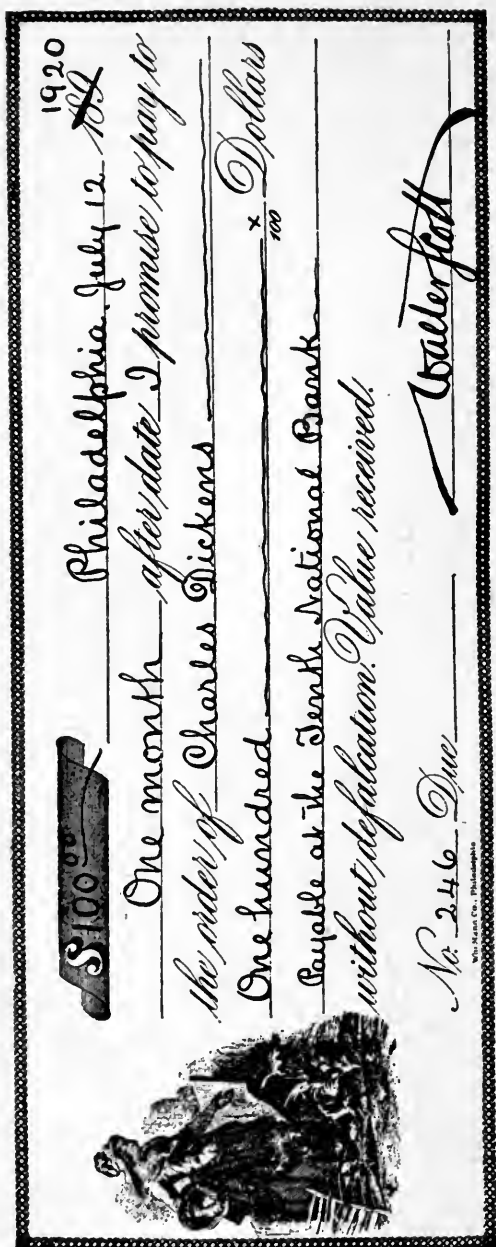 $100⁰⁰ Philadelphia, July 12 1920 189
One month after date I promise to pay to
the order of Charles Dickens
One hundred x/100 Dollars
Payable at the Tenth National Bank
without defalcation. Value received.
No. 246 Due Walter Scott
Wm. Mann Co., Philadelphia